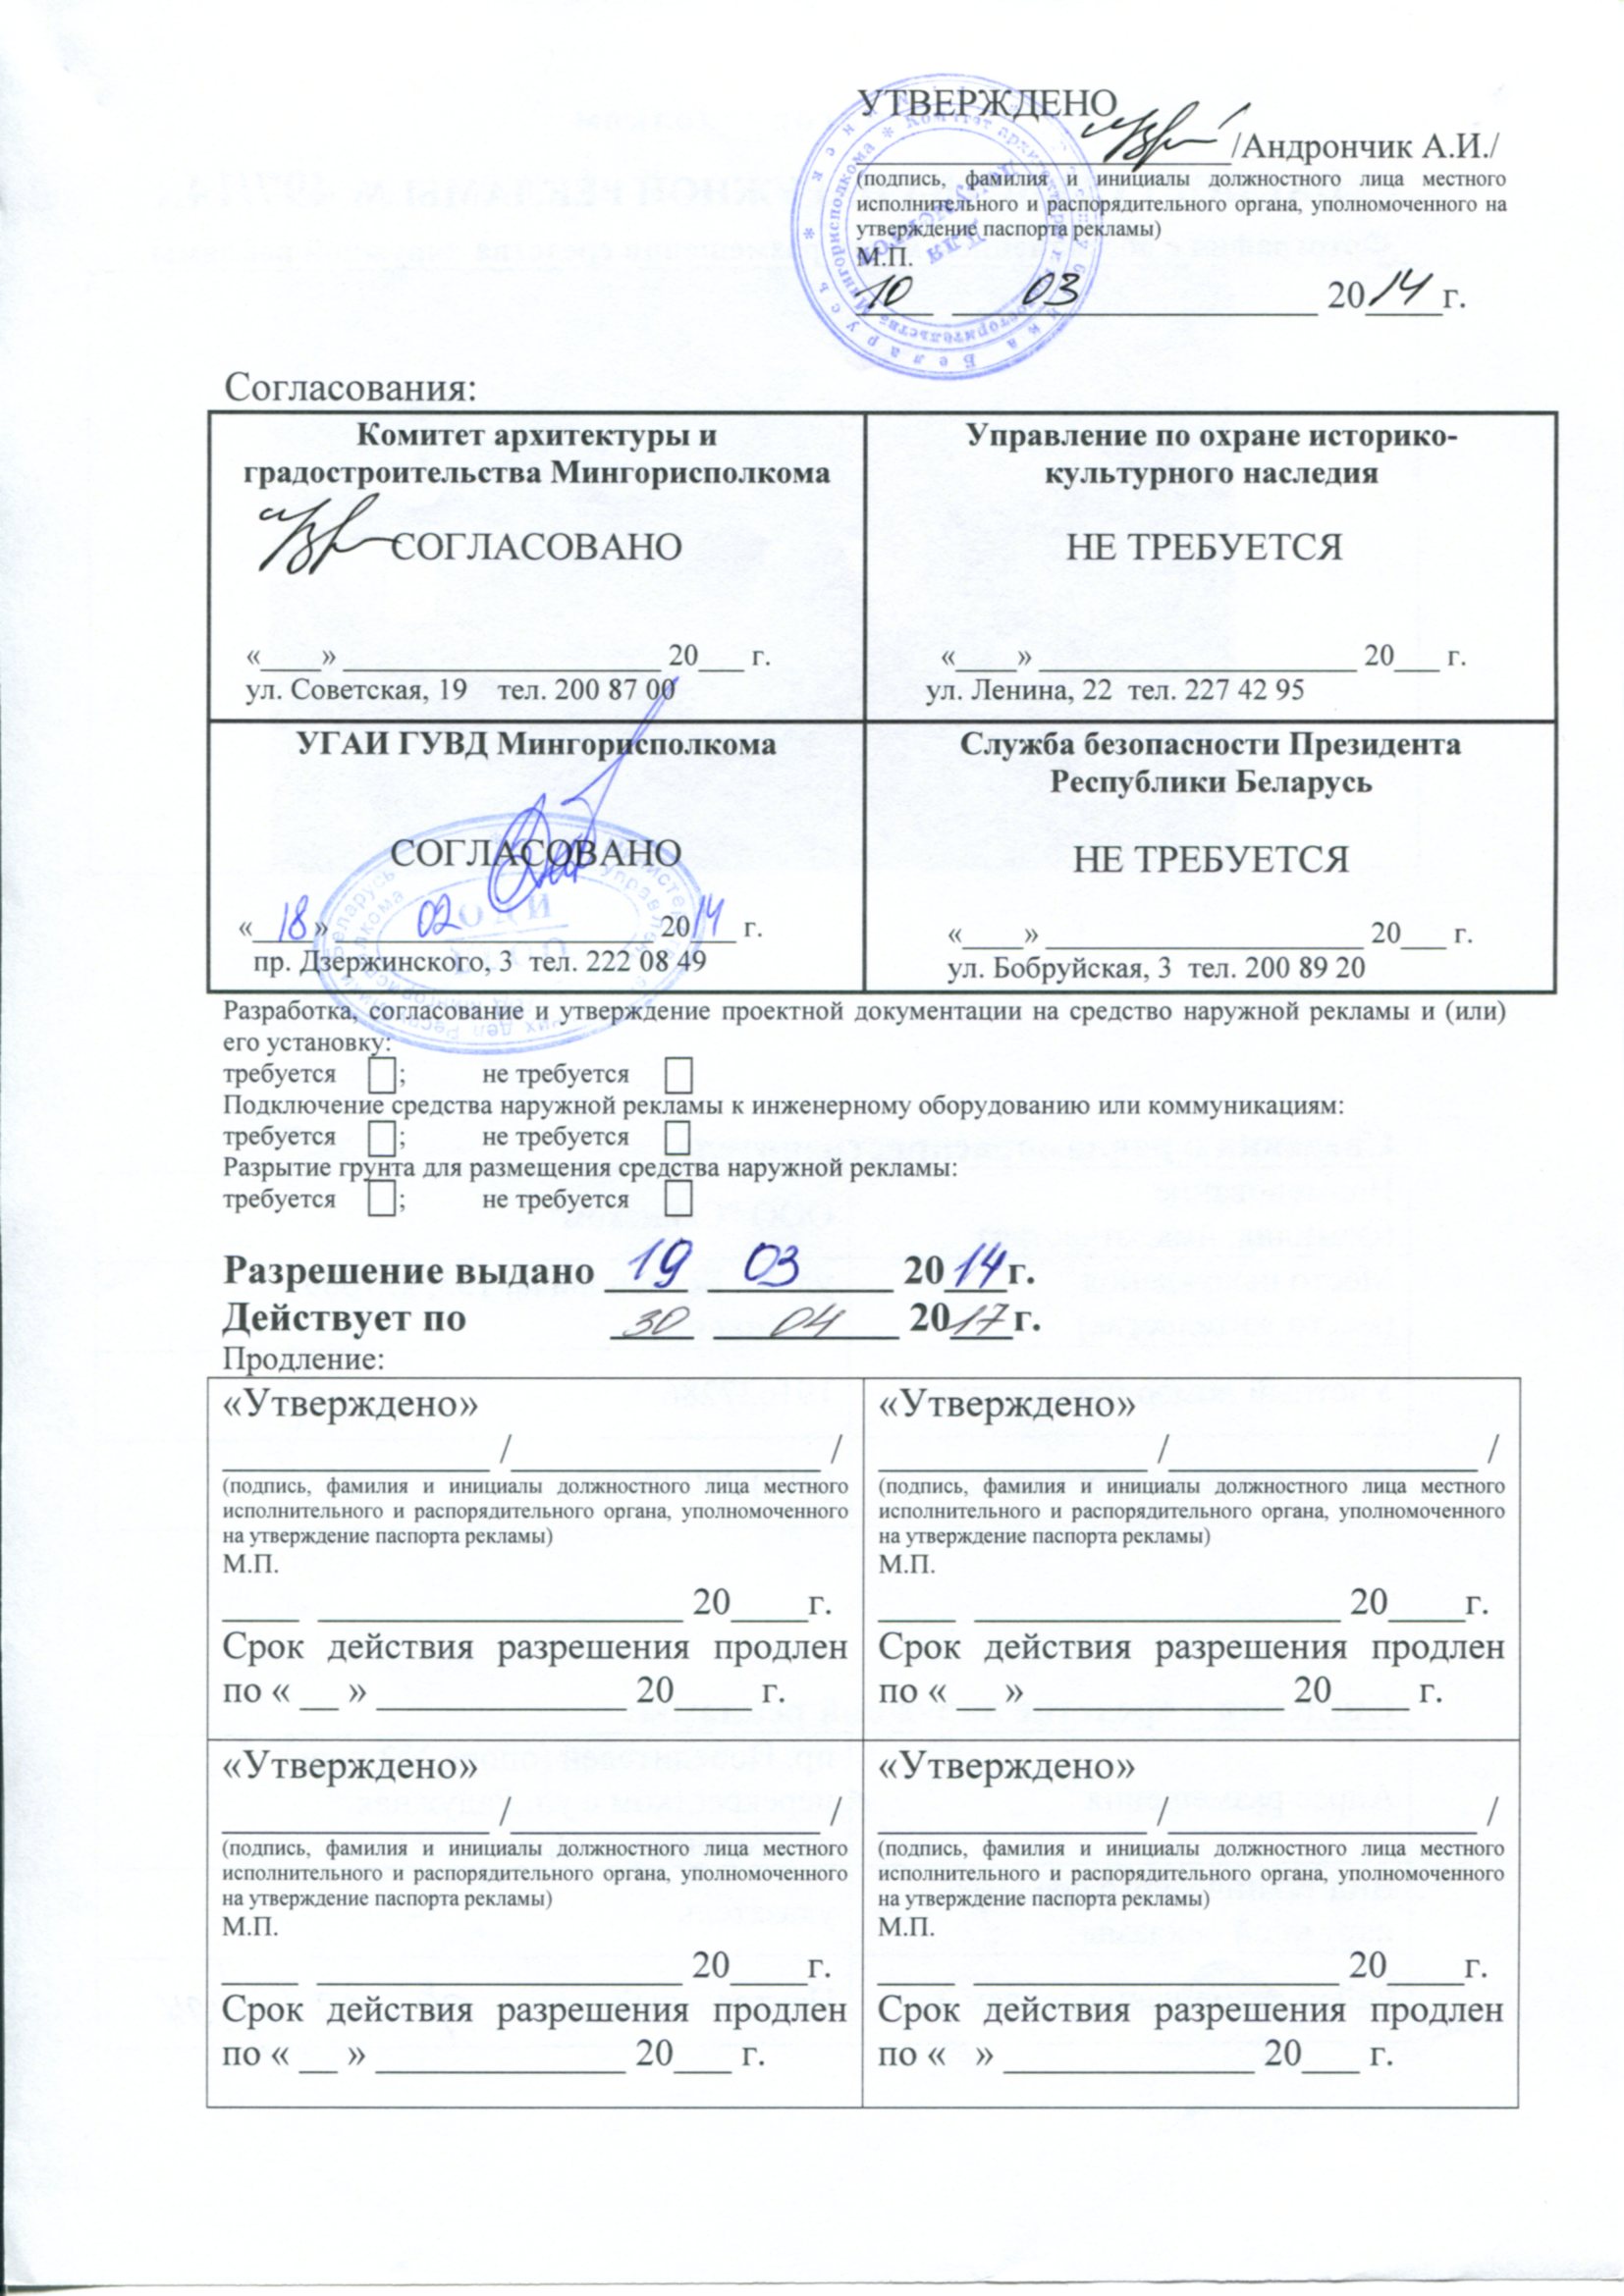 УТВЕРЖДЕНО
____________/Андрончик А.И./
(подпись, фамилия и инициалы должностного лица местного
исполнительного и распорядительного органа, уполномоченного на
утверждение паспорта рекламы)
М.П.
10 03 2014г.
Согласования:
Комитет архитектуры и
градостроительства Мингорисполкома
СОГЛАСОВАНО
«____» ____________ 20___ г.
ул. Советская, 19 тел. 200 87 00
Управление по охране историко-
культурного наследия
НЕ ТРЕБУЕТСЯ
«____» ____________ 20___ г.
ул. Ленина, 22 тел. 227 42 95
УГАИ ГУВД Мингорисполкома
СОГЛАСОВАНО
«18» 02 2014 г.
пр. Дзержинского, 3 тел. 222 08 49
Служба безопасности Президента
Республики Беларусь
НЕ ТРЕБУЕТСЯ
«____» ____________ 20___ г.
ул. Бобруйская, 3 тел. 200 89 20
Разработка, согласование и утверждение проектной документации на средство наружной рекламы и (или)
его установку:
требуется ; не требуется
Подключение средства наружной рекламы к инженерному оборудованию или коммуникациям:
требуется ; не требуется
Разрытие грунта для размещения средства наружной рекламы:
требуется ; не требуется
Разрешение выдано 19 03 2014г.
Действует по 30 04 2017г.
Продление:
«Утверждено»
____________ /____________ /
(подпись, фамилия и инициалы должностного лица местного
исполнительного и распорядительного органа, уполномоченного
на утверждение паспорта рекламы)
М.П.
____ ____________ 20____г.
Срок действия разрешения продлен
по « __ » ____________ 20____ г.
«Утверждено»
____________ /____________ /
(подпись, фамилия и инициалы должностного лица местного
исполнительного и распорядительного органа, уполномоченного
на утверждение паспорта рекламы)
М.П.
____ ____________ 20____г.
Срок действия разрешения продлен
по «__ » ____________ 20____ г.
«Утверждено»
____________ /____________ /
(подпись, фамилия и инициалы должностного лица местного
исполнительного и распорядительного органа, уполномоченного
на утверждение паспорта рекламы)
М.П.
____ ____________ 20____г.
Срок действия разрешения продлен
по « __ » ____________ 20___ г.
«Утверждено»
____________ /____________ /
(подпись, фамилия и инициалы должностного лица местного
исполнительного и распорядительного органа, уполномоченного
на утверждение паспорта рекламы)
М.П.
____ ____________ 20____г.
Срок действия разрешения продлен
по « » ____________ 20___ г.